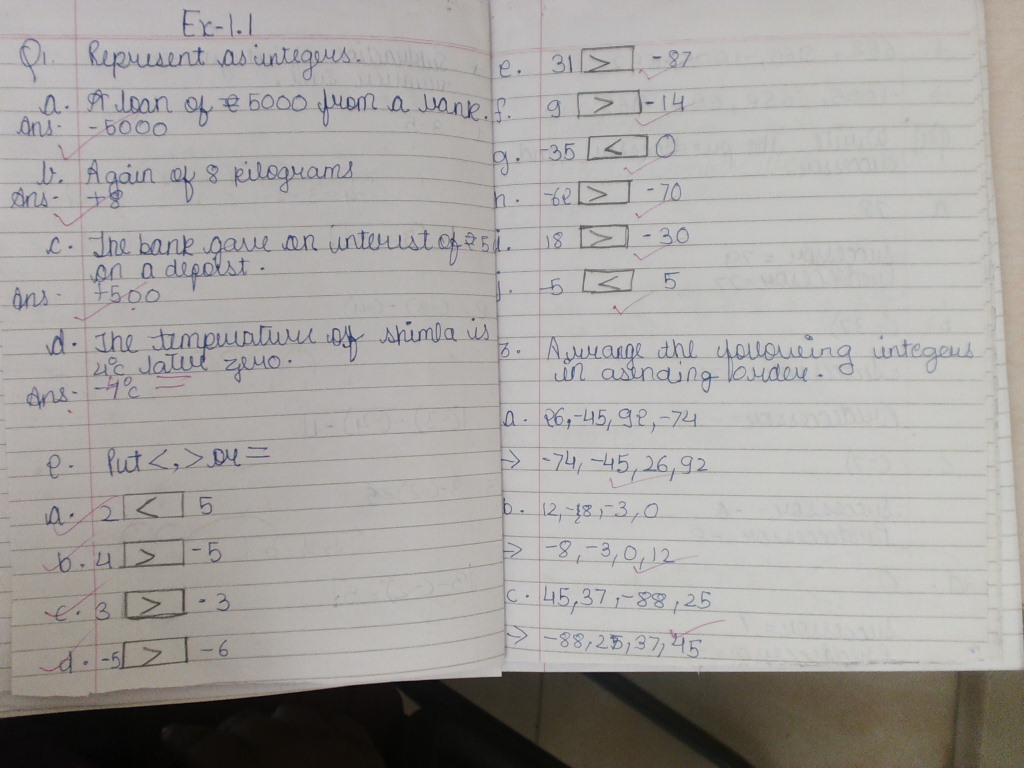 Ex-1.1
Q1. Represent as integers.
a. A loan of ₹ 5000 from a bank.
Ans- -5000
b. A gain of 8 kilograms
Ans- +8
c. The bank gave an interest of ₹ 5
on a deposit.
Ans- +500
d. The temperature of shimla is
4°c below zero.
Ans- -4°c
2. Put <, > or =
a. 2 < 5
b. 4 > -5
c. 3 > -3
d. -5 > -6
e. 31 > -87
f. 9 > -14
g. -35 < 0
h. -62 > -70
i. 18 > -30
j. -5 < 5
3. Arrange the following integers
in asending order.
a. 26, -45, 92, -74
→ -74, -45, 26, 92
b. 12, -8, -3, 0
→ -8, -3, 0, 12
c. 45, 37, -88, 25
→ -88, 25, 37, 45